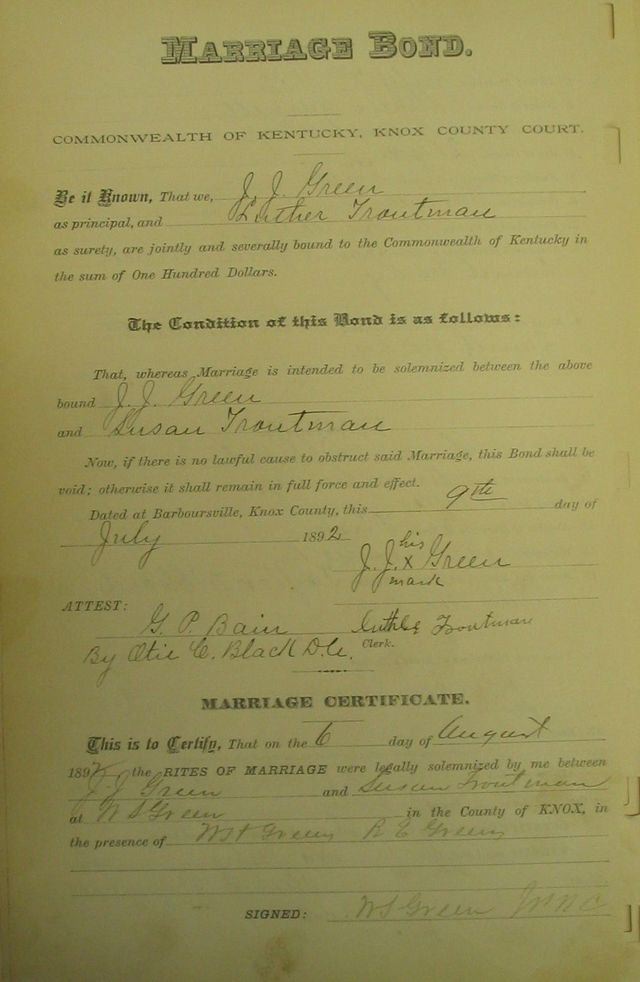 MARRIAGE BOND.
COMMONWEALTH OF KENTUCKY, KNOX COUNTY COURT.
Be it Known, That we, J. J. Green
as principal, and Luther Troutman
as surety, are jointly and severally bound to the Commonwealth of Kentucky in
the sum of One Hundred Dollars.
The Condition of this Bond is as follows:
That, whereas Marriage is intended to be solemnized between the above
bound J. J. Green
and Susan Troutman
Now, if there is no lawful cause to obstruct said Marriage, this Bond shall be
void; otherwise it shall remain in full force and effect.
Dated at Barboursville, Knox County, this 9th day of
July 1892
his
J. J. x Green
mark
ATTEST:
G. P. Bain Luther Troutman
By Otie C. Black D.C. Clerk.
MARRIAGE CERTIFICATE.
This is to Certify, That on the 6 day of August
1892 the RITES OF MARRIAGE were legally solemnized by me between
J. J Green and Susan Troutman
at W S Green in the County of KNOX, in
the presence of Green R E Green
SIGNED: W S Green